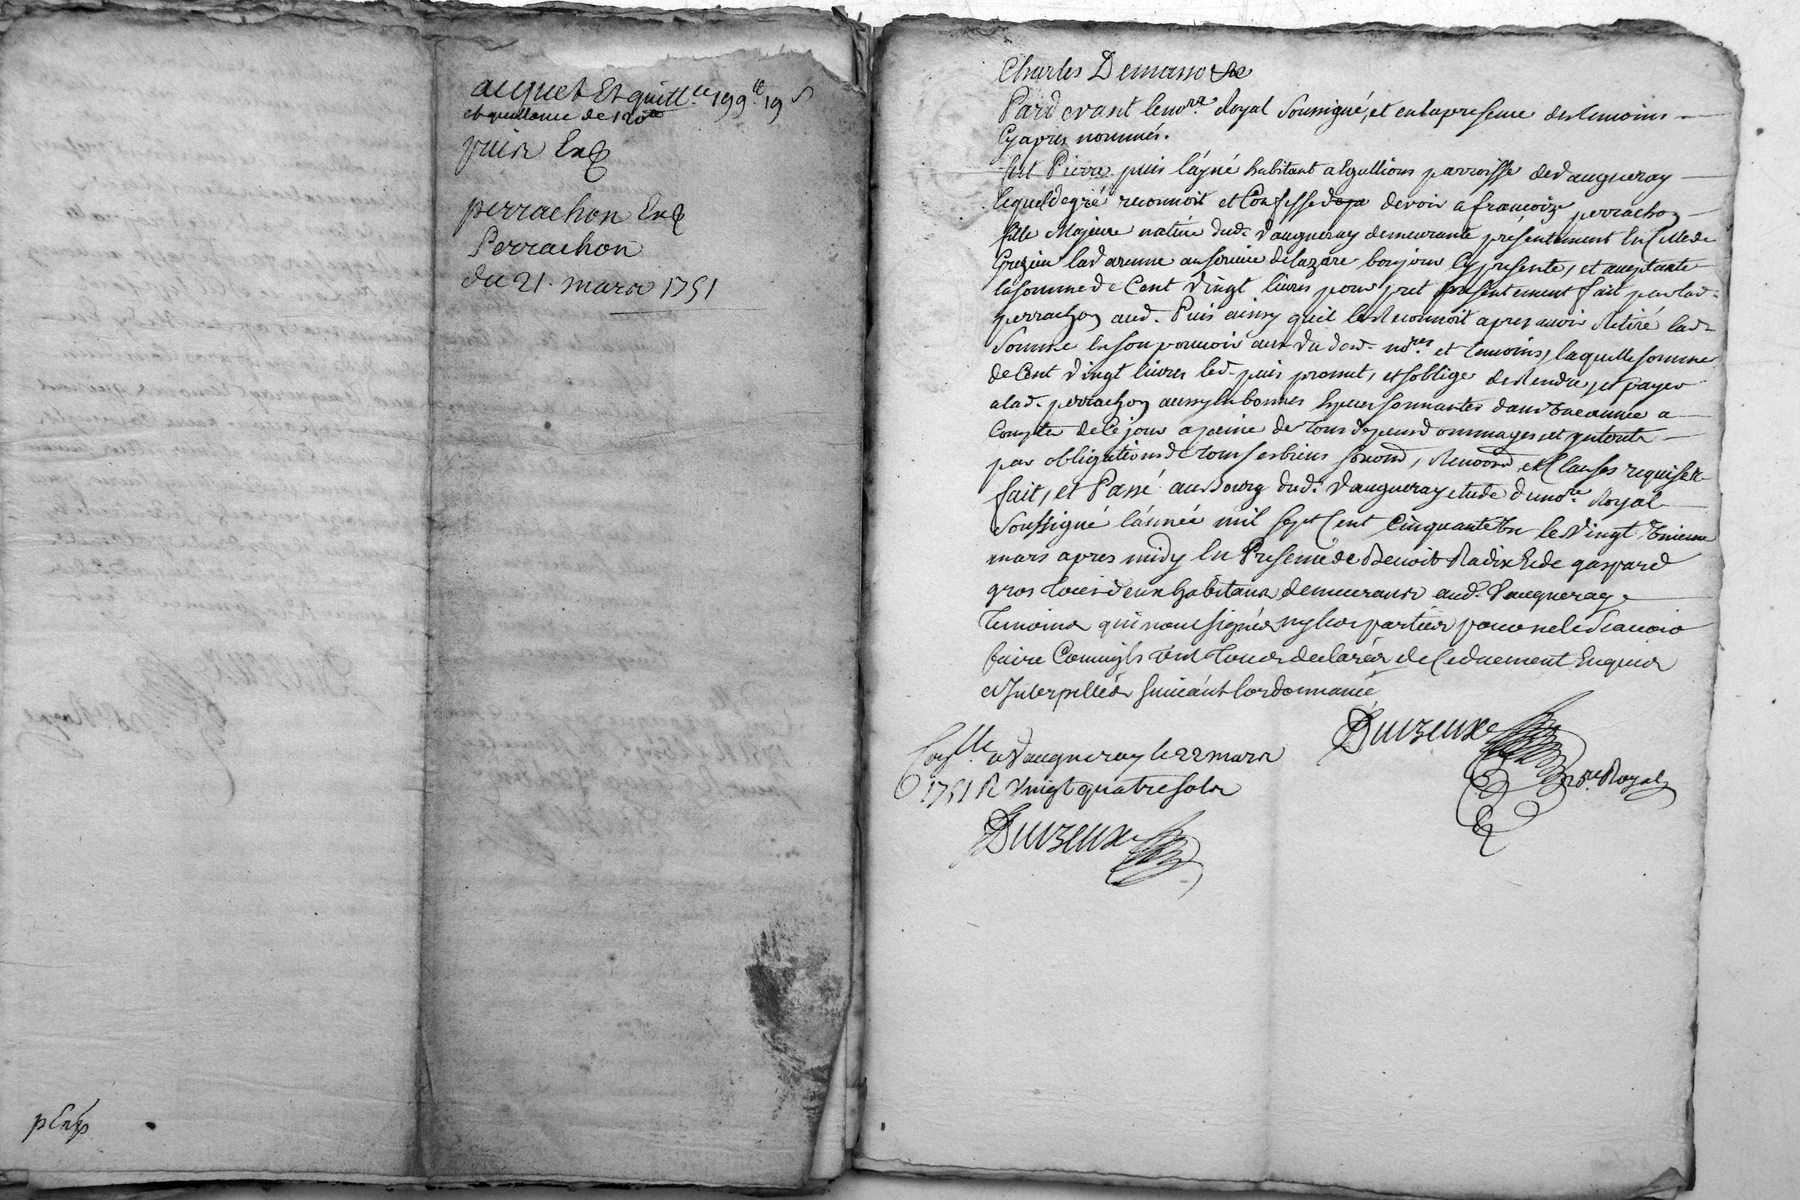 acquet Et quitt.ce 199.tt 19 s
et quittance de 120tt
puis Exp
perrachon Exp
Perrachon
du 21. mars 1751
pExp
Charles Demasso &c
Pardevant le no.re Royal Soussigné, et en la presence des temoins
Cy apres nommés.
fut Pierre puis l'ayné habitant a parroisse de Vaugneray
lequel de gré reconnoit et Confesse devoir a francoise perrachon
fille Majeure native dud. Vaugneray demeurante présentement En Celle de
Grezieu la Varenne au service de lazare bonjour Cy présente, et acceptante
la somme de Cent Vingt livres pour pret présentement fait par lad.
perrachon aud. Puis ainsy qu'il le Reconnoit apres avoir Retiré lad.
Somme En son pouvoir au Vu desd. no.res et temoins, laquelle somme
de Cent Vingt livres led. puis promet, et s'oblige de Rendre, et payer
a lad. perrachon aussy En bonnes Especes sonnantes dans Une année a
Compter de Ce jour a peine de tous depens dommages, et
par obligation de tous ses biens Renond. et Clauses requises
fait, et Passé au Bourg dud. Vaugneray etude du no.re Royal
Soussigné l'année mil Sept Cent Cinquante Un le Vingt Unieme
mars apres midy En Presence de Benoit Radix Et de gaspard
gros tous deux habitans demeurans aud. Vaugneray
temoins qui n'ont signés ny les parties pour ne le Scavoir
faire Comm'ils ont tous declarés de Ce duement Enquis
et Interpellés suivant l'ordonnance
Duvzeux
no.re Royal
Con.lle a Vaugneray le 22 mars
1751 R Vingt quatre sols
Duvzeux